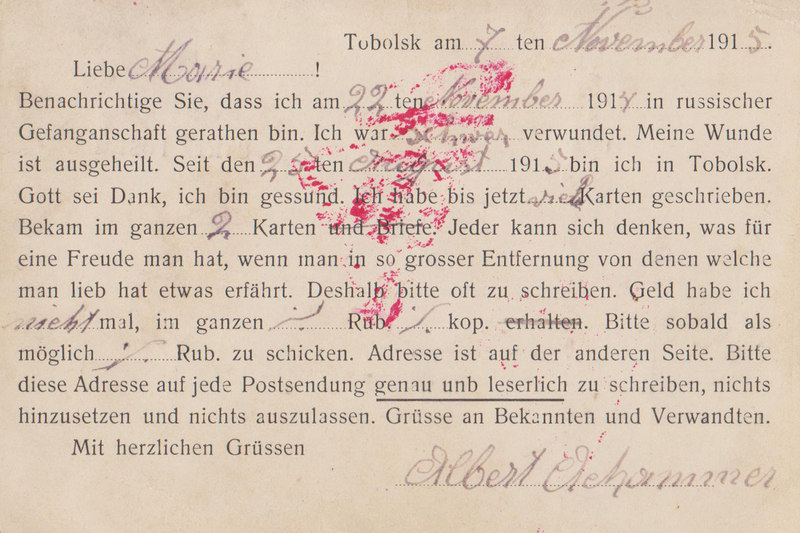 Tobolsk am 7 ten November 1915.
Liebe Marie !
Benachrichtige Sie, dass ich am 22 ten November 1914 in russischer
Gefanganschaft gerathen bin. Ich war schwer verwundet. Meine Wunde
ist ausgeheilt. Seit den 25 ten August 1915 bin ich in Tobolsk.
Gott sei Dank, ich bin gessund. Ich habe bis jetzt viel Karten geschrieben.
Bekam im ganzen 2 Karten und Briefe. Jeder kann sich denken, was für
eine Freude man hat, wenn man in so grosser Entfernung von denen welche
man lieb hat etwas erfährt. Deshalb bitte oft zu schreiben. Geld habe ich
nicht mal, im ganzen ./. Rub. ./. kop. erhalten. Bitte sobald als
möglich ./. Rub. zu schicken. Adresse ist auf der anderen Seite. Bitte
diese Adresse auf jede Postsendung genau unb leserlich zu schreiben, nichts
hinzusetzen und nichts auszulassen. Grüsse an Bekannten und Verwandten.
Mit herzlichen Grüssen
Albert